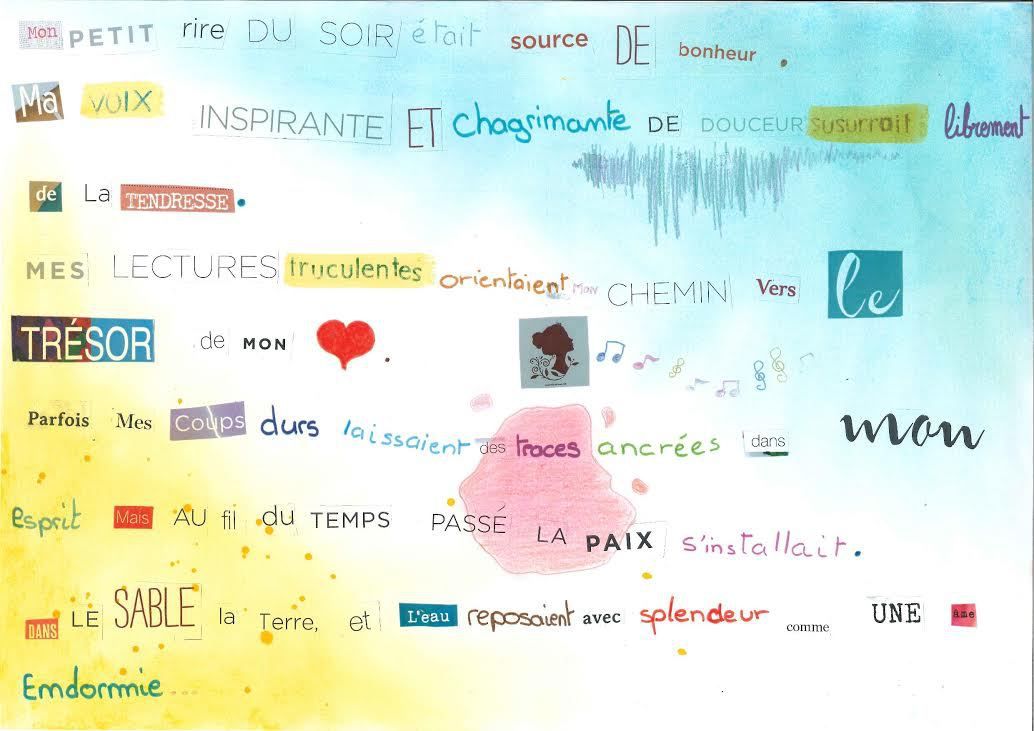 Mon PETIT rire DU SOIR était source DE bonheur .
Ma VOIX INSPIRANTE ET chagrimante DE DOUCEUR susurrait librement
de La TENDRESSE.
MES LECTURES truculentes orientaient Mon CHEMIN Vers le
TRÉSOR de MON .
Parfois Mes Coups durs laissaient des traces ancrées dans mon
esprit Mais AU fil du TEMPS PASSÉ LA PAIX s'installait.
DANS LE SABLE la Terre, et L'eau reposaient avec splendeur comme UNE âme
Emdormie....